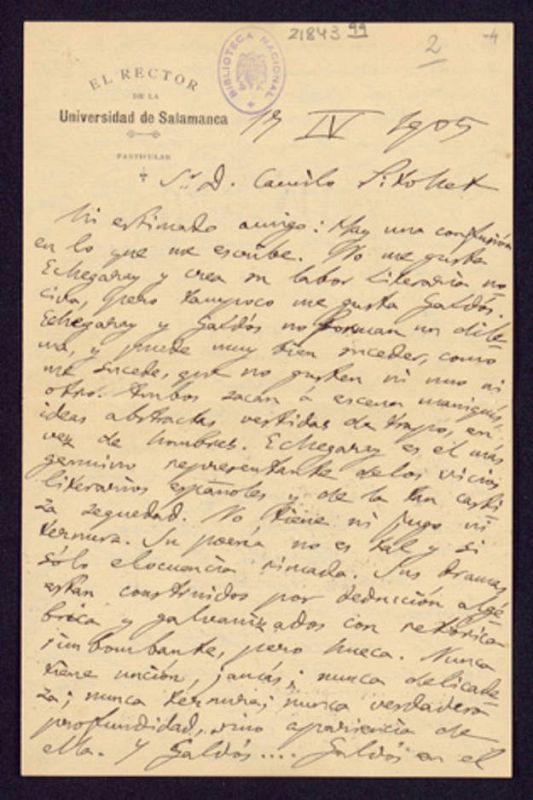 21843 99
2
-4
BIBLIOTECA NACIONAL
EL RECTOR
DE LA
Universidad de Salamanca
PARTICULAR
IV 1905
Sr. D. Camilo Pitollet
Mi estimado amigo: Hay una confusión
en lo que me escribe. No me gusta
Echegaray y creo su labor literaria no
civa, pero tampoco me gusta Galdós.
Echegaray y Galdós no forman un dile
ma, y puede muy bien suceder, como
me sucede, que no gusten ni uno ni
otro. Ambos sacan á escena maniquís,
ideas abstractas vestidas de trapo, en
vez de hombres. Echegaray es el más
genuino representante de los vicios
literarios españoles y de la tan casti
za sequedad. No tiene ni jugo ni
ternura. Su poesía no es tal y sí
sólo elocuencia rimada. Sus dramas
están construidos por deducción algé
brica y galvanizados con retórica
rimbombante, pero hueca. Nunca
tiene unción, jamás; nunca delicade
za; nunca ternura; nunca verdadera
profundidad, sino apariencia de
ella. Y Galdós.... Galdós en el